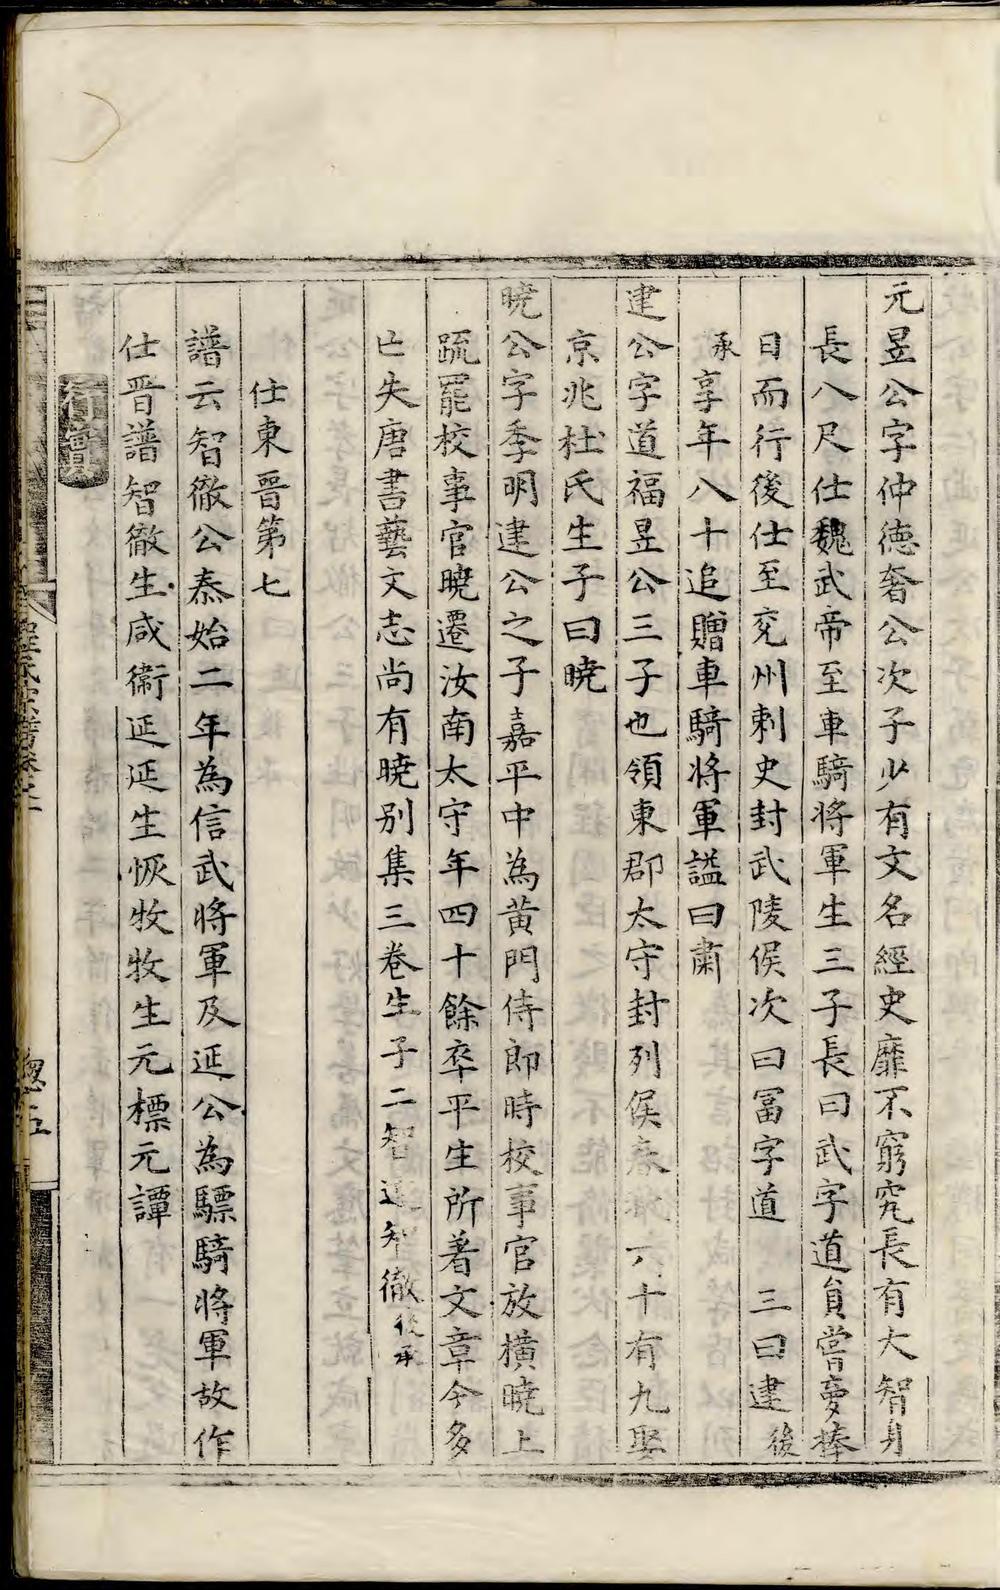 元昱公字仲德奢公次子少有文名經史靡不窮究長有大智身
長八尺仕魏武帝至車騎將軍生三子長曰武字道員嘗夢捧
日而行後仕至兖州刺史封武陵侯次曰冨字道 三曰建後
承享年八十追贈車騎將軍謚曰肅
建公字道福昱公三子也領東郡太守封列侯春秋八十有九娶
京兆杜氏生子曰曉
曉公字季明建公之子嘉平中為黄門侍郎時校事官放横曉上
䟽罷校事官曉遷汝南太守年四十餘卒平生所著文章今多
亡失唐書藝文志尚有曉别集三卷生子二智達智徹後承
仕東晋第七
譜云智徹公泰始二年為信武將軍及延公為驃騎將軍故作
仕晋譜智徹生咸衛延延生恢牧牧生元標元譚
程氏宗譜卷之二